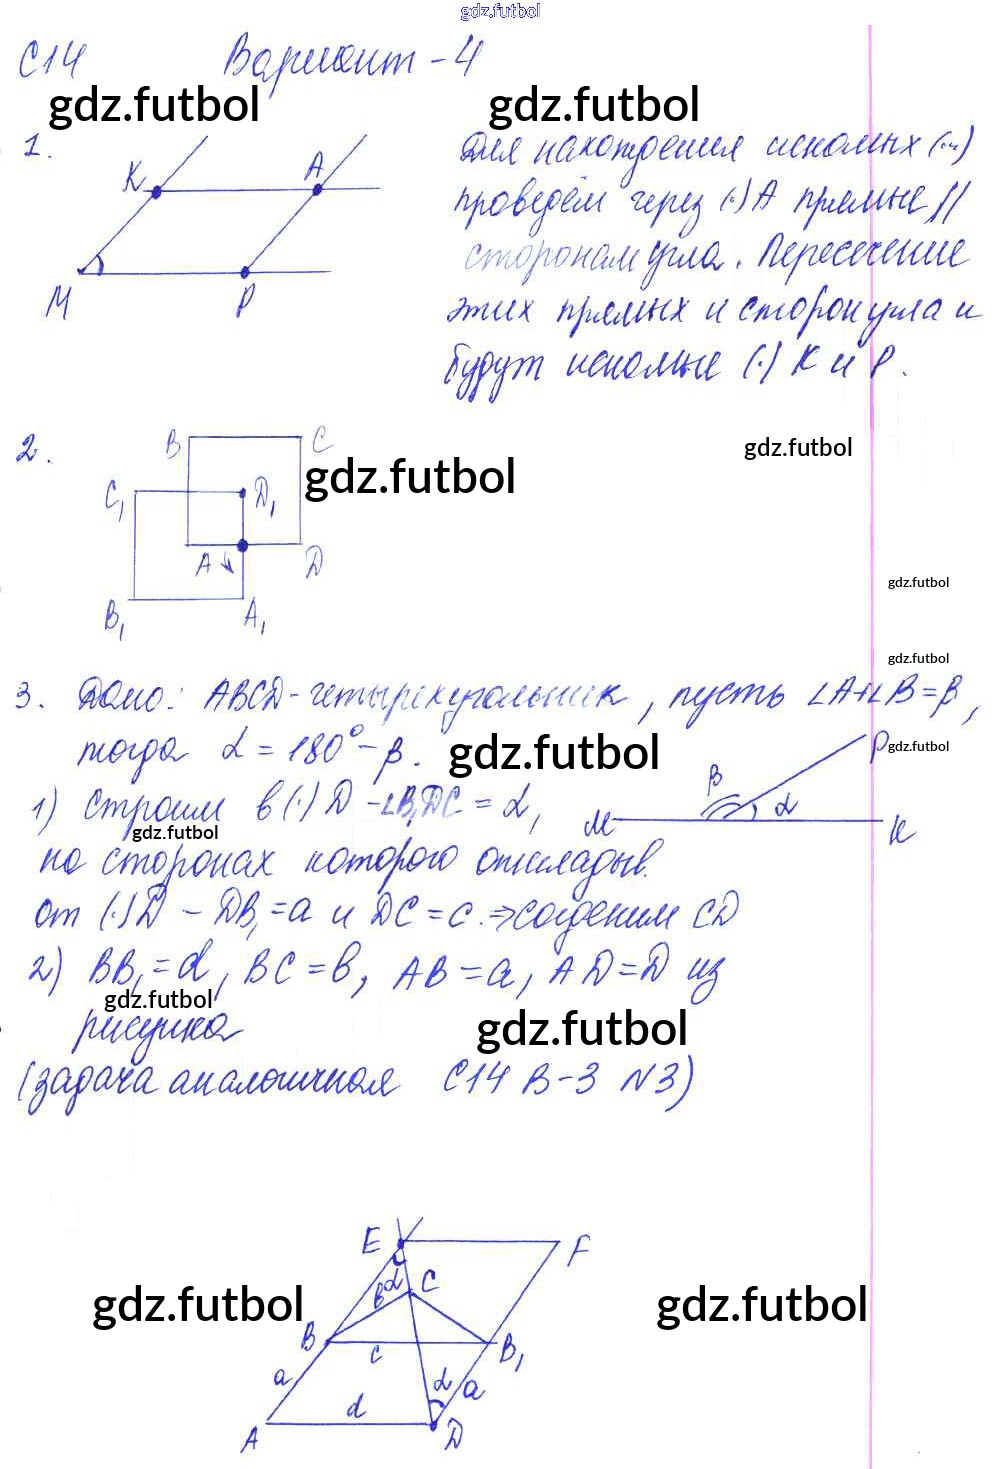 gdz.futbol
С14 Вариант - 4
gdz.futbol gdz.futbol
1.
K A
M P
Для нахождения искомых (...)
проведём через (·) А прямые //
сторонам угла. Пересечение
этих прямых и сторон угла и
будут искомые (·) К и Р.
2.
B C
gdz.futbol
gdz.futbol
C₁ D₁
A D
B₁ A₁
gdz.futbol
gdz.futbol
3. Дано: ABCD - четырехугольник, пусть ∠A+∠B=β,
тогда α = 180° - β.
gdz.futbol
gdz.futbol
P
β α
M K
1) Строим в (·) D - ∠B₁DC = α,
gdz.futbol
на сторонах которого откладыв.
от (·) D - DB₁ = a и DC = c. ⇒ соединим CD
2) BB₁ = d, BC = b, AB = a, AD = D из
gdz.futbol
рисунка
gdz.futbol
(задача аналогичная С14 В-3 N3)
E F
α C
b
gdz.futbol gdz.futbol
B c B₁
a α a
d
A D